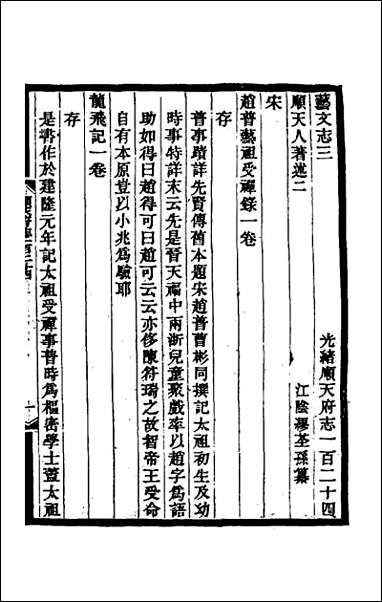 藝文志三
光緒順天府志一百二十四
順天人著述二
江陰繆荃孫纂
宋
趙普藝祖受禪錄一卷
存
普事蹟詳先賢傳舊本題宋趙普曹彬同撰記太祖初生及功
時事特詳末云先是晉天福中兩浙兒童聚戲率以趙字爲語
助如得曰趙得可曰趙可云云亦侈陳符瑞之故智帝王受命
自有本原豈以小兆爲驗耶
龍飛記一卷
存
是書作於建隆元年記太祖受禪事普時爲樞密學士蓋太祖